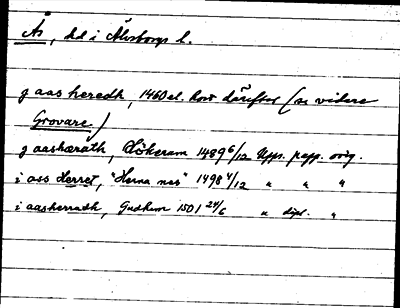 Ås, hd i Älvsborgs l.
j aas heredh, 1460 el. kort därefter (se vidare
Grovare)
j aashærath, Hökerum 1489 6/12 Upps. papp. orig.
i ass Herret, "Herna næs" 1498 4/12 " " "
i aasherradh, Gudhem 1501 24/6 " dipl. "